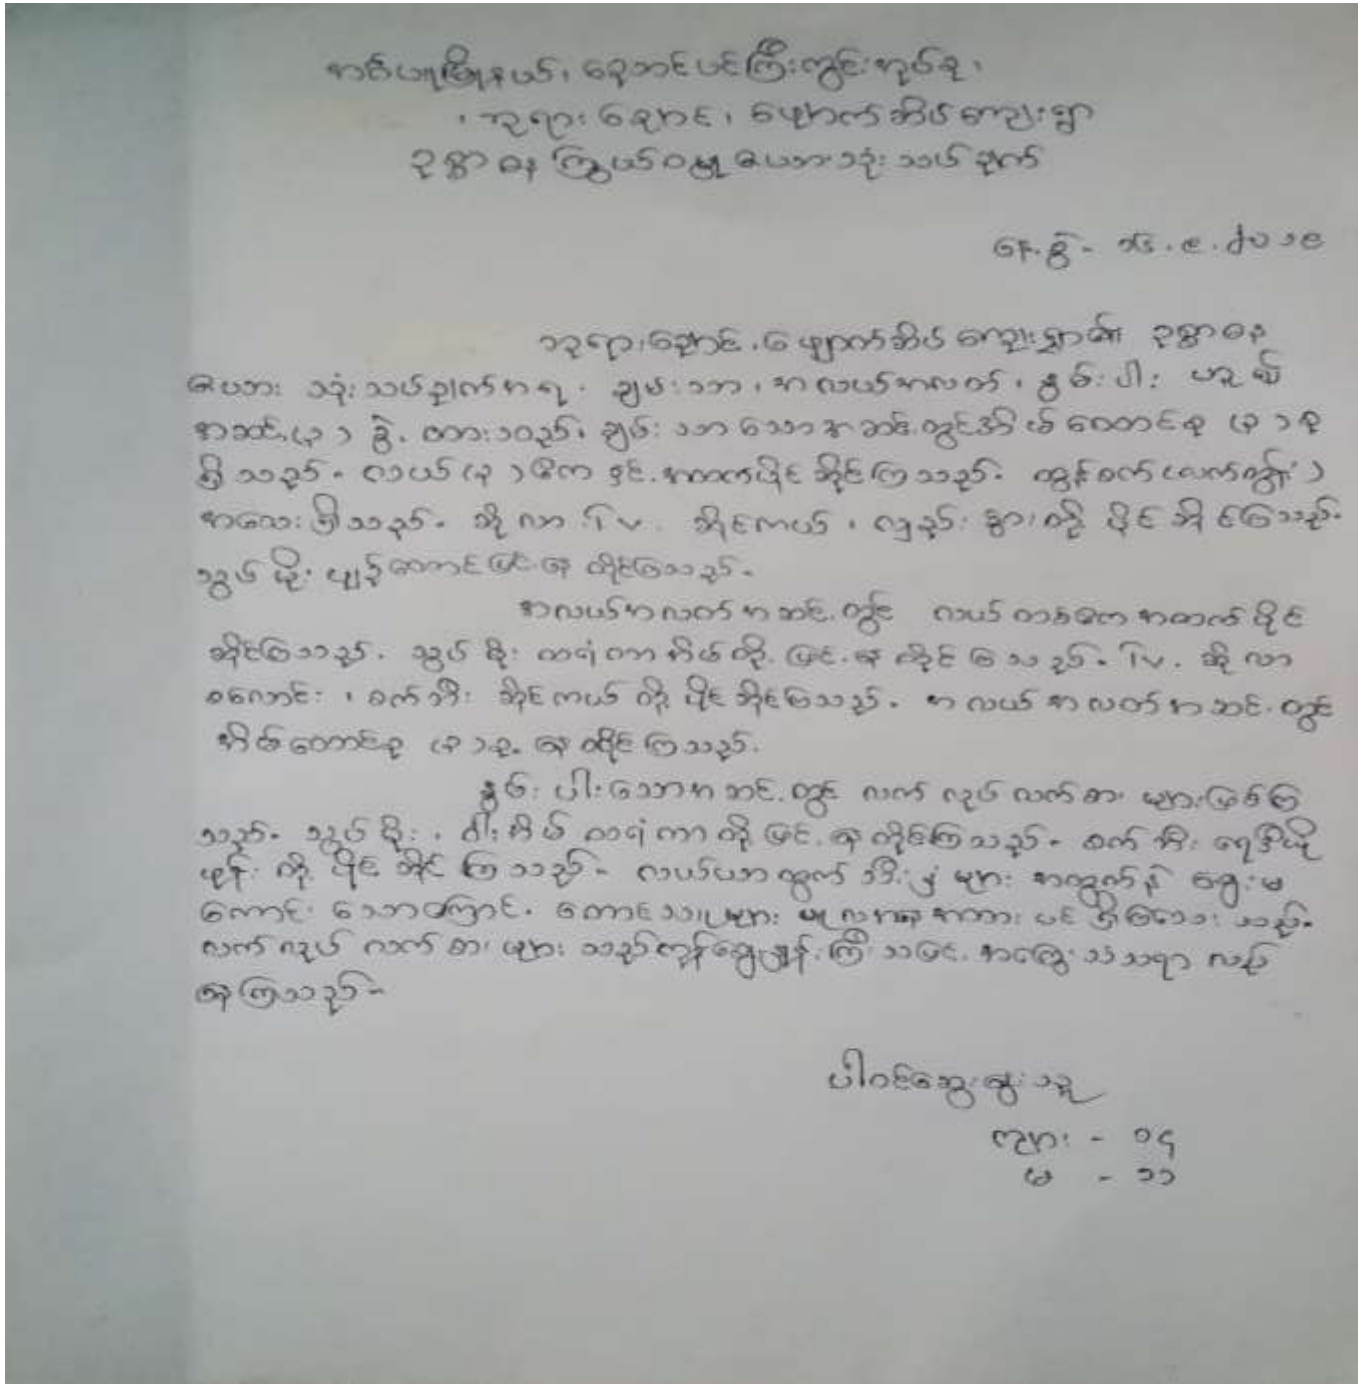 အင်းပုမြို့နယ်၊ ညောင်ပင်ကြီးကွင်းအုပ်စု၊
၊ ဘုရားချောင်၊ ပျောက်ဆိပ်ကျေးရွာ
ဥစ္စာဓန ကြွယ်ဝမှု ပေဘားသုံးသပ်ချက်
နေ့စွဲ - ၁၆.၉.၂၀၁၉
ဘုရားချောင်၊ ပျောက်ဆိပ်ကျေးရွာ၏ ဥစ္စာဓန
ပေဘား သုံးသပ်ချက်အရ၊ ချမ်းသာ၊ အလယ်အလတ်၊ နွမ်းပါး ဟူ၍
အဆင့် (၃) ခွဲ ထားသည်။ ချမ်းသာသောအဆင့်တွင်အိမ်ထောင်စု (၃) စု
ရှိသည်။ လယ် (၃) ဧကနှင့်အထက်ပိုင်ဆိုင်ကြသည်။ ထွန်စက် (လက်တွန်း)
အလေးရှိသည်။ ဆိုလာ၊ TV၊ ဆိုင်ကယ်၊ လှည်း နွားတို့ ပိုင်ဆိုင်ကြသည်။
သွပ်မိုး ပျဉ်ထောင်ဖြင့် နေထိုင်ကြသည်။
အလယ်အလတ်အဆင့်တွင် လယ်တစ်ဧကအထက်ပိုင်
ဆိုင်ကြသည်။ သွပ်မိုး ထရံကာအိမ်တို့ဖြင့် နေထိုင်ကြသည်။ TV၊ ဆိုလာ
စလောင်း၊ စက်ဘီး ဆိုင်ကယ်တို့ ပိုင်ဆိုင်ကြသည်။ အလယ်အလတ်အဆင့်တွင်
အိမ်ထောင်စု (၃) စု နေထိုင်ကြသည်။
နွမ်းပါးသောအဆင့်တွင် လက်လုပ်လက်စား များဖြစ်ကြ
သည်။ သွပ်မိုး၊ ဝါးအိမ် ထရံကာတို့ဖြင့် နေထိုင်ကြသည်။ စက်ဘီး ရေဒီယို
ဖုန်းတို့ ပိုင်ဆိုင်ကြသည်။ လယ်ယာထွက်သီးနှံများ အထွက်နှုန်း ဈေးမ
ကောင်းသောကြောင့် တောင်သူများ အကြွေး တင်ရှိသေးသည်။
လက်လုပ်လက်စားများ သည်ကုန်ဈေးနှုန်းကြီးသဖြင့် အကြွေးသံသရာ လည်
နေကြသည်။
ပါဝင်ဆွေးနွေးသူ
ကျား - ၁၄
မ - ၁၁